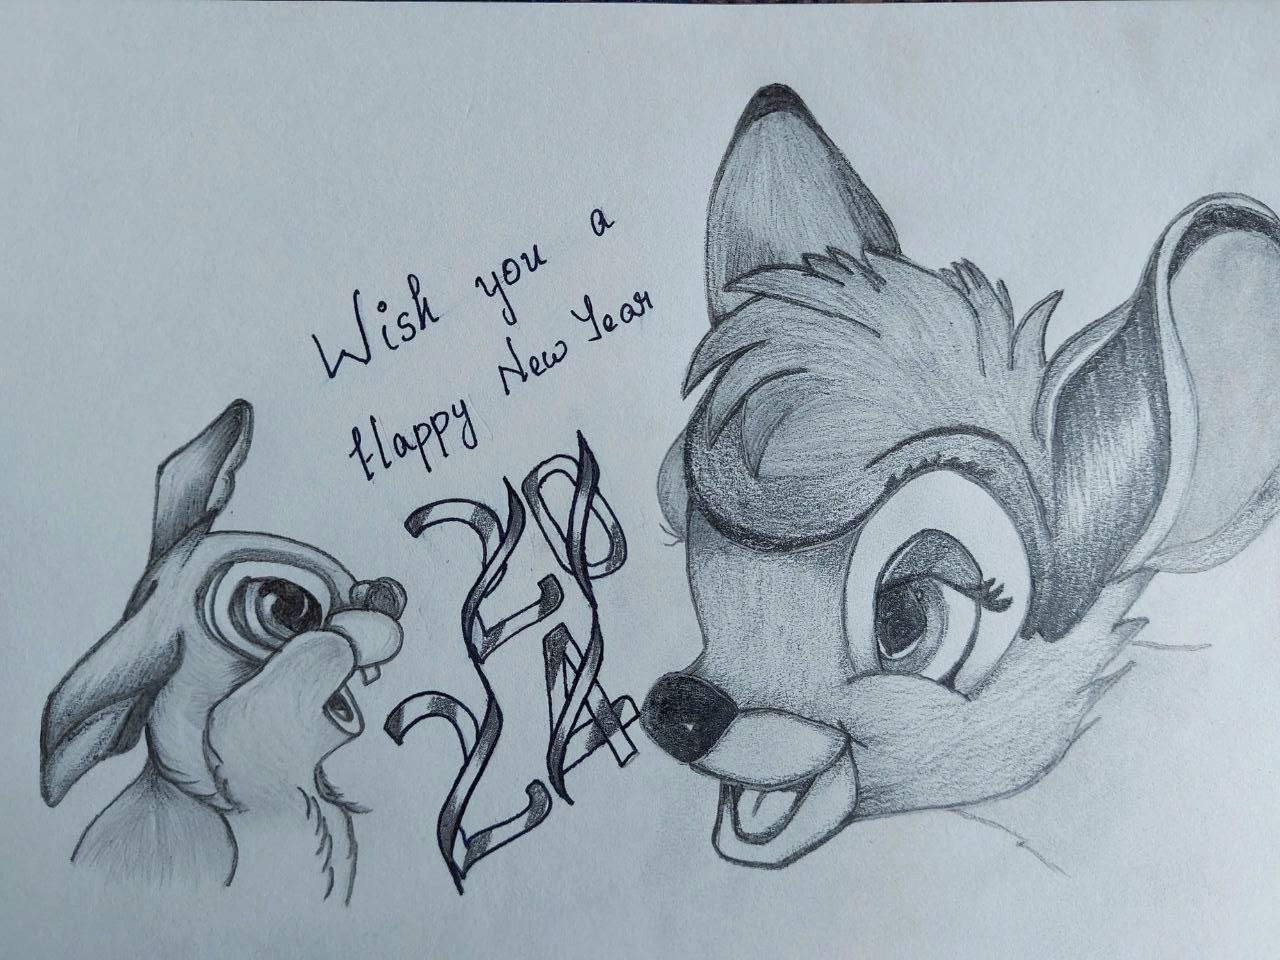 Wish you a
Happy New Year
20
24